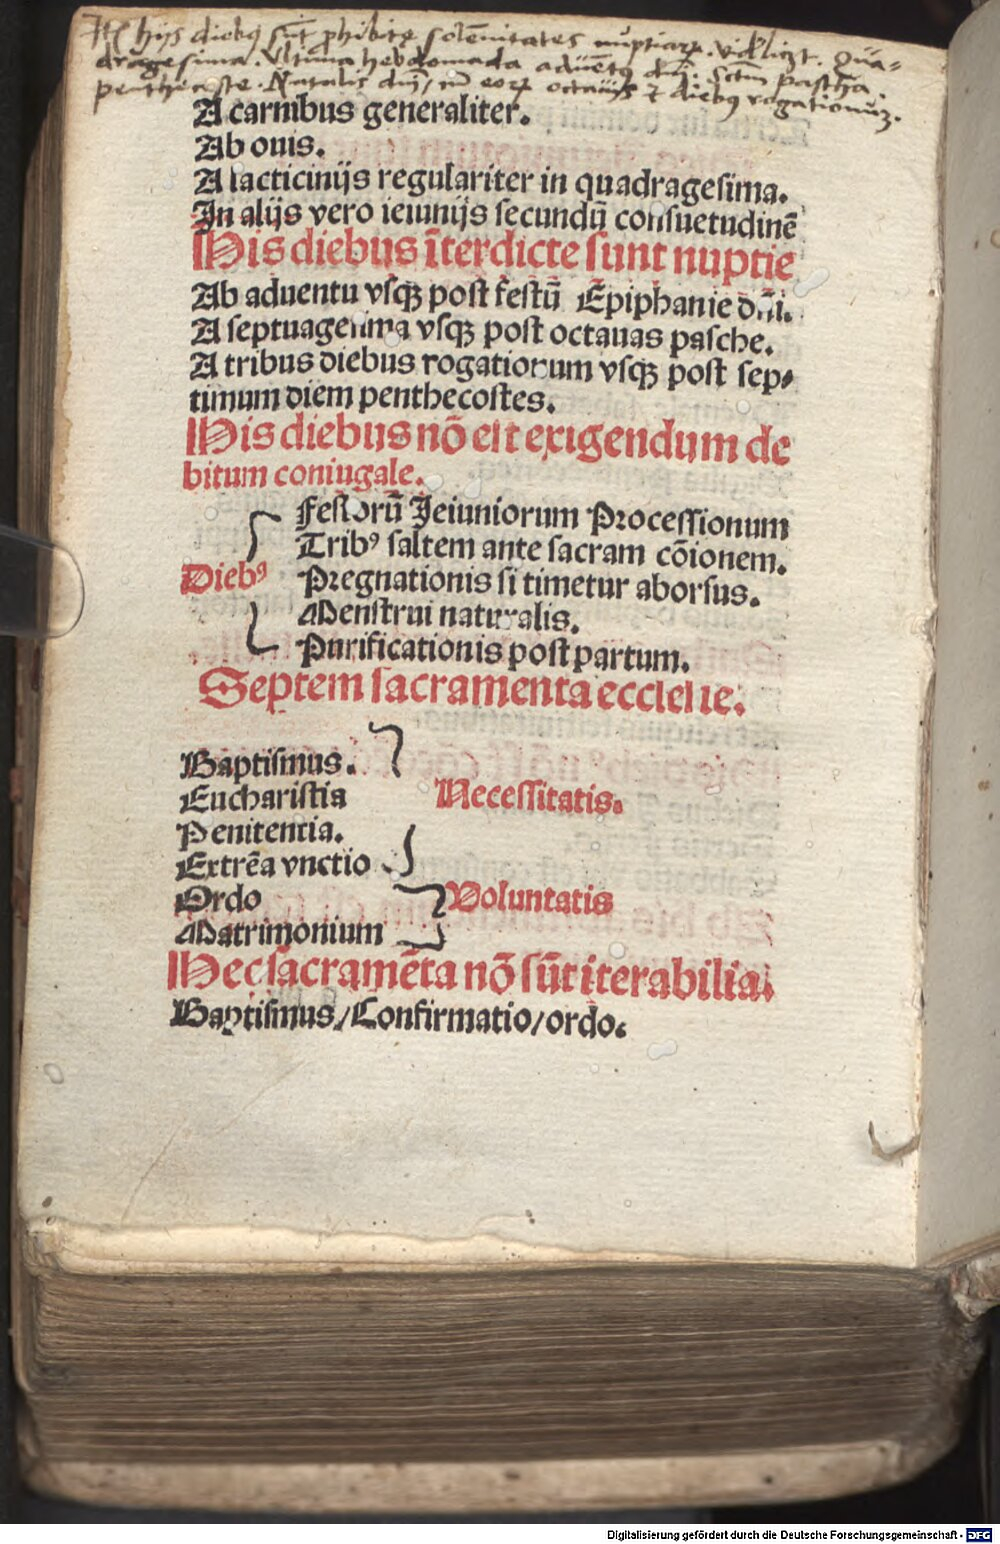 Itē hijs diebꝰ sūt ꝓhibite solēnitates nuptiaꝝ. vidꝫlicꝫt. Qua-
dragesima. Vltima hebdomada aduētꝰ dnī. Sctūm pascha.
penthecoste. Natalis dnī, cū eoꝝ octauijs ⁊ diebꝰ rogationuꝫ.
A carnibus generaliter.
Ab ouis.
A lacticinijs regulariter in quadragesima.
In alijs vero ieiunijs secundū consuetudinē
His diebus īterdicte sunt nuptie
Ab aduentu vsqꝫ post festū Epiphanie dn̄i.
A septuagesima vsqꝫ post octauas pasche.
A tribus diebus rogationum vsqꝫ post sep⸗
timum diem penthecostes.
His diebus nō est exigendum de
bitum coniugale.
Festorū Ieiuniorum Processionum
Tribꝰ saltem ante sacram cōionem.
Diebꝰ Pregnationis si timetur aborsus.
Menstrui naturalis.
Purificationis post partum.
Septem sacramenta ecclesie.
Baptismus.
Eucharistia Necessitatis.
Penitentia.
Extrēa vnctio
Ordo Voluntatis
Matrimonium
Hec sacramēta nō sūt iterabilia.
Baptismus/Confirmatio/ordo.
Digitalisierung gefördert durch die Deutsche Forschungsgemeinschaft - DFG